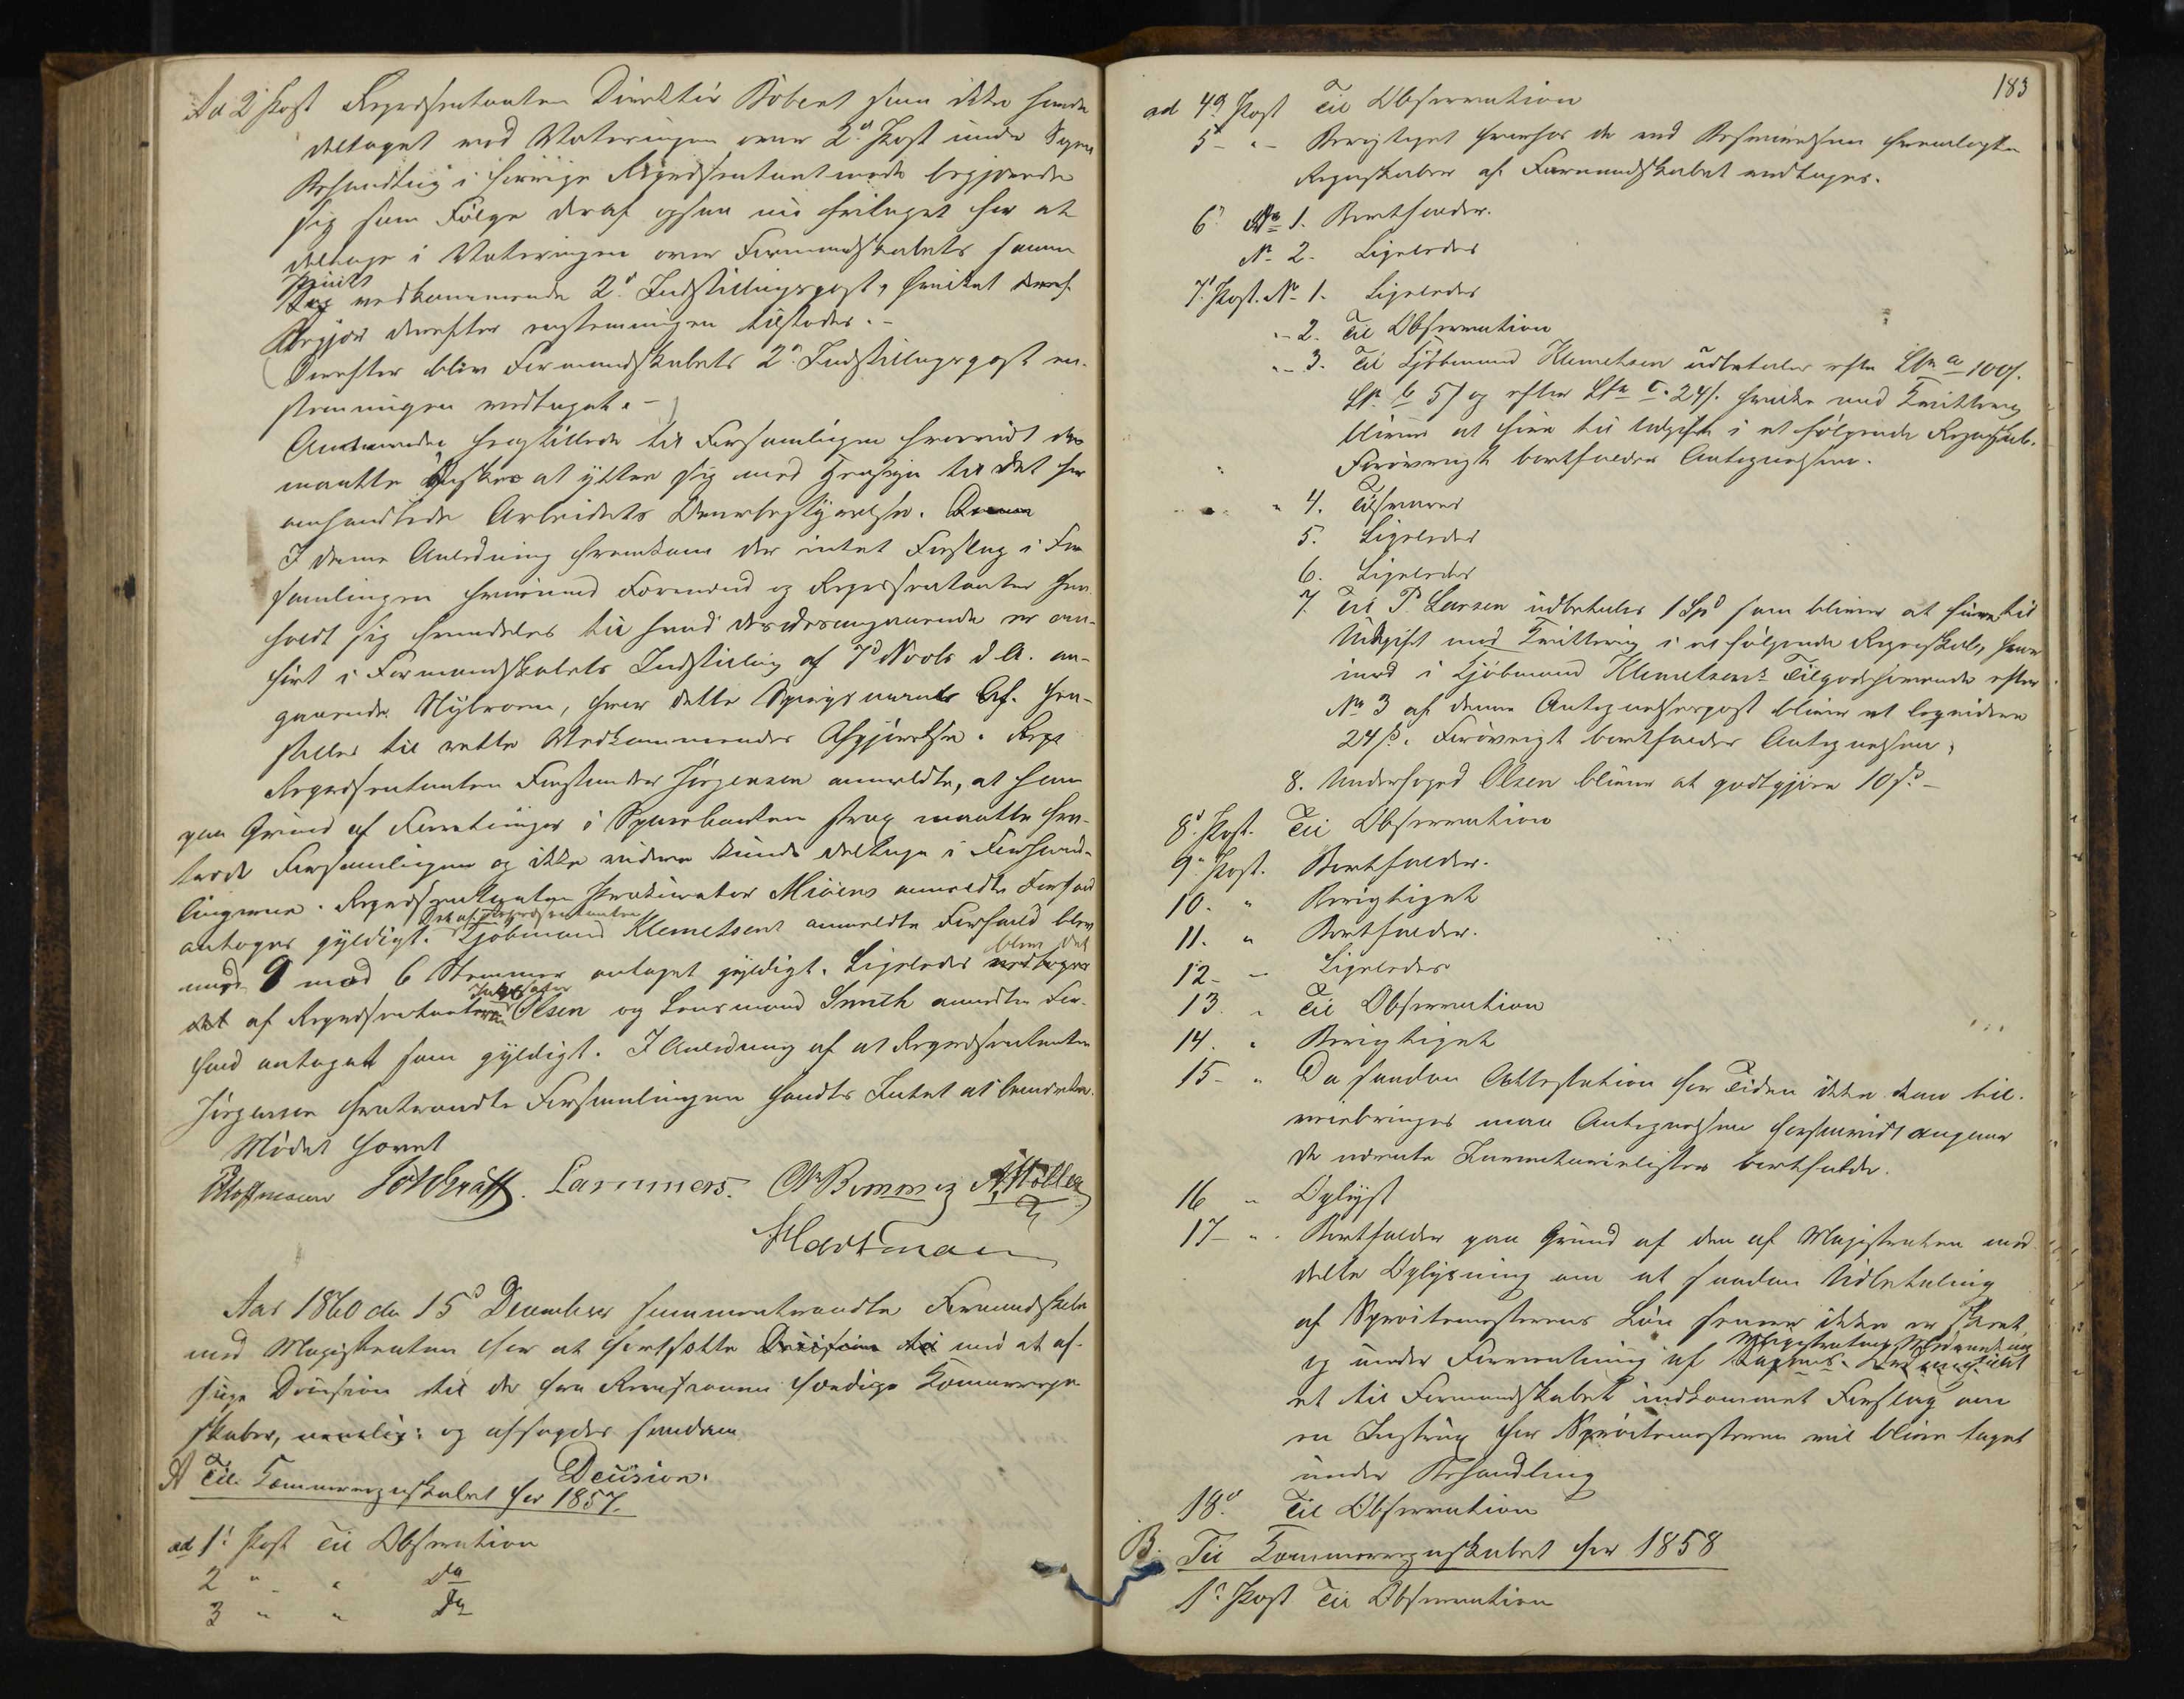 Ad 2d Post Repræsentanten Direktør Bøbert som ikke havde
deltaget ved Voteringen over 2d Post under Sagens
Behandling i forrige Repræsentantmøde begjærede
sig som Følge deraf ogsaa nu fritaget for at
deltage i Voteringen over Formandskabets samme
Punkt
Sag vedkommende 2d Indstillingspost, hvilket
Begjær derefter enstemmigen tilstodes. -
Derefter blev Formandskabets 2d Indstillingspost en-
stemmigen vedtaget. -
fremstillede til Forsamlingen hvorvidt der
maatte ønskes at yttre sig med Hensyn til det her
omhandlede Arbeidets Overbestyrelse.
I denne Anledning fremkom der intet Forslag i For
samlingen hvorimod Formænd og Repræsentanter hen-
holdt sig fremdeles til hvad desangaaende er an-
ført i Formandskabets Indstilling af 7d Novbr d. A. an-
gaaende Nybroen, hvor dette Spørgsmaals Afg. hen-
stilles til rette Vedkommendes Afgjørelse. Repr
Repræsentanten Forstander Jørgensen anmeldte, at han
paa Grund af Forretninger i Sparebanken strax maatte fra-
træde Forsamlingen og ikke videre kunde deltage i Forhand-
lingerne. Repræsentanten Prokurator Miøens anmeldte Forfald
antoges gyldigt. Det af Repræsentanten Kjøbmand Klemetsens anmeldte Forfald blev
med 9 mod 6 Stemmer antaget gyldigt. Ligeledes blev det
det af Repræsentanterne Olsen og Lensmand Smith anmeldte For-
fald antaget som gyldigt. I Anledning af at Repræsentanten
Jørgensen fratraadte Forsamlingen fandtes Intet at bemærke.
Mødet hævet
Lammers. A Møller
Hartmann
Aar 1860 den 15d December sammentraadte Formandskabet
med Magistraten for at fortsætte Decision til med at af-
sige Decision til de fra Revisionen færdige Kæmnerregn
skaber, nemlig: og afsagdes saadan
Decision.
A Til Kæmnerregnskabet for 1857.
ad 1ste Post Til Observation
2 " " do
3 " " do
183
ad 4de Post Til Observation
5 " - Berigtiget hvorfor de ved Besvarelsen fremlagte
Regnskaber af Formandskabet antages.
6 No 1. Bortfalder.
No 2. Ligeledes
7d Post. No 1. Ligeledes
" - 2. Til Observation
" - 3. Til Kjøbmand Klemetsen udbetales efter Litr a 100/.
Litr. b 5/ og efter Litr c. 24/. hvilke med Kvittering
bliver at føre til Udgift i et følgende Regnskab.
Forøvrigt bortfalder Antegnelsen.
" 4. Tilsvares
5. Ligeledes
6. Ligeledes
7. Til P. Larsen udbetales 1 Spd som bliver at føre til
Udgift med Kvittering i et følgende Regnskab, hvor
imod i Kjøbmand Klemetsens Tilgodehavende efter
No 3 af denne Antegnelsespost bliver at liquidere
24 ß. Forøvrigt bortfalder Antegnelsen.
8. Underfoged Olsen bliver at godtgjøre 10 ß. -
8d Post. Til Observation
9d Post. Bortfalder.
10. " Berigtiget
11. " Bortfalder.
12 - Ligeledes
13. " Til Observation
14. " Berigtiget
15 - " Da saadan Attestation for Tiden ikke kan til-
veiebringes maa Antegnelsen forsaavidt angaar
de nævnte Inventarielister bortfalde.
16 " Oplyst
17 - " Bortfalder paa Grund af den af Magistraten med-
delte Oplysning om at saadan Udbetaling
af Sprøitemesterens Løn senere ikke er skeet,
og under Forventning af Magistratens Medvirkning
et til Formandskabet indkommet Forslag om
en Instrux for Sprøitemesteren vil blive taget
under Behandling
18d Til Observation
B. Til Kæmnerregnskabet for 1858
1ste Post Til Observation